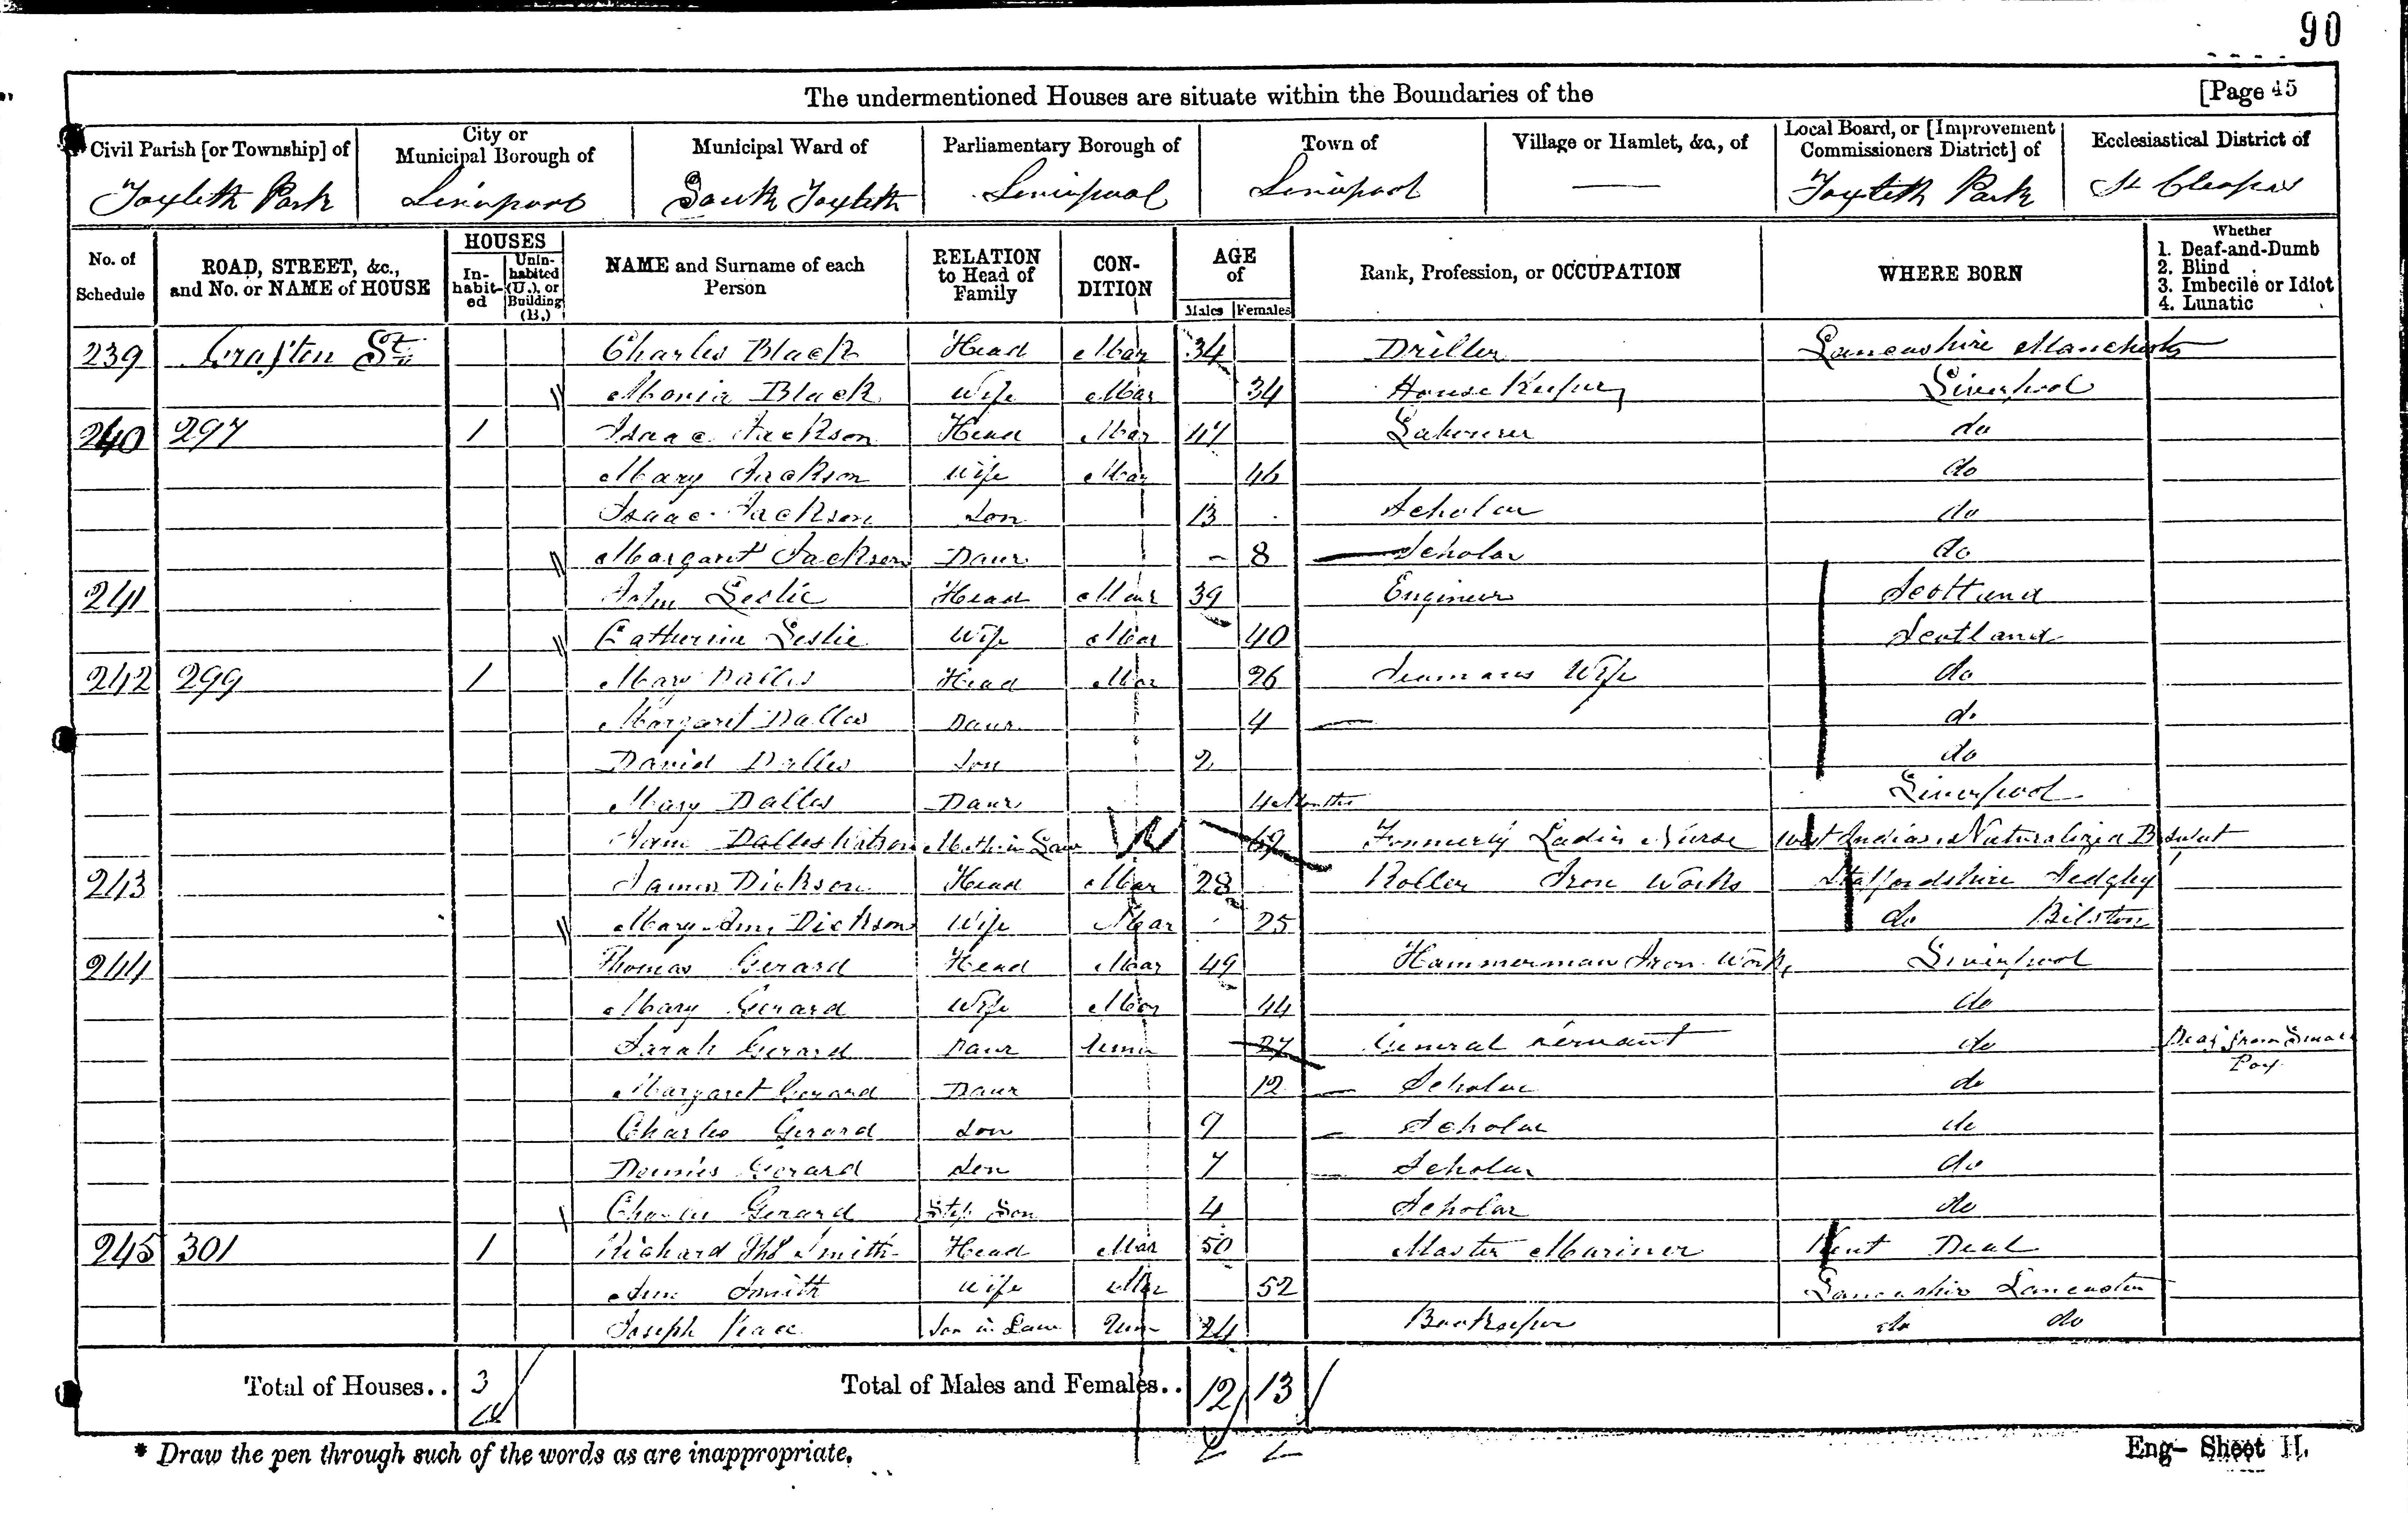 90
The undermentioned Houses are situate within the Boundaries of the [Page 45
Civil Parish [or Township] of City or Municipal Borough of Municipal Ward of Parliamentary Borough of Town of Village or Hamlet, &c., of Local Board, or [Improvement Commissioners District] of Ecclesiastical District of
Toxteth Park Liverpool South Toxteth Liverpool Liverpool — Toxteth Park St Cleopas
No. of Schedule ROAD, STREET, &c., and No. or NAME of HOUSE HOUSES In-habit-ed Unin-habited (U.), or Building (B.) NAME and Surname of each Person RELATION to Head of Family CON-DITION AGE of Males Females Rank, Profession, or OCCUPATION WHERE BORN Whether 1. Deaf-and-Dumb 2. Blind 3. Imbecile or Idiot 4. Lunatic
239 Grafton St Charles Black Head Mar 34 Driller Lancashire Manchester
Maria Black Wife Mar 34 House Keeper Liverpool
240 297 1 Isaac Jackson Head Mar 47 Labourer do
Mary Jackson Wife Mar 46 do
Isaac Jackson Son 13 Scholar do
Margaret Jackson Daur 8 Scholar do
241 John Leslie Head Mar 39 Engineer Scotland
Catherine Leslie Wife Mar 40 Scotland
242 299 1 Mary Dalles Head Mar 26 Seamans Wife do
Margaret Dalles Daur 4 do
David Dalles Son 2 do
Mary Dalles Daur 4 Months Liverpool
Dalles Watson Moth in Law W 69 Formerly Ladies Nurse West Indias Naturalized B Subect
243 James Dickson Head Mar 28 Roller Iron Works Staffordshire Sedgley
Mary Ann Dickson Wife Mar 25 do Bilston
244 Thomas Gerard Head Mar 49 Hammerman Iron Works Liverpool
Mary Gerard Wife Mar 44 do
Sarah Gerard Daur Unm 27 General Servant do Deaf from Small Pox
Margaret Gerard Daur 12 Scholar do
Charles Gerard Son 9 Scholar do
Dennis Gerard Son 7 Scholar do
Charles Gerard Step Son 4 Scholar do
245 301 1 Richard Thos Smith Head Mar 50 Master Mariner Kent Deal
Ann Smith Wife Mar 52 Lancashire Lancaster
Joseph Son in Law Unm 24 Bookeeper do do
Total of Houses.. 3 Total of Males and Females.. 12 13
* Draw the pen through such of the words as are inappropriate.
Eng— Sheet II.